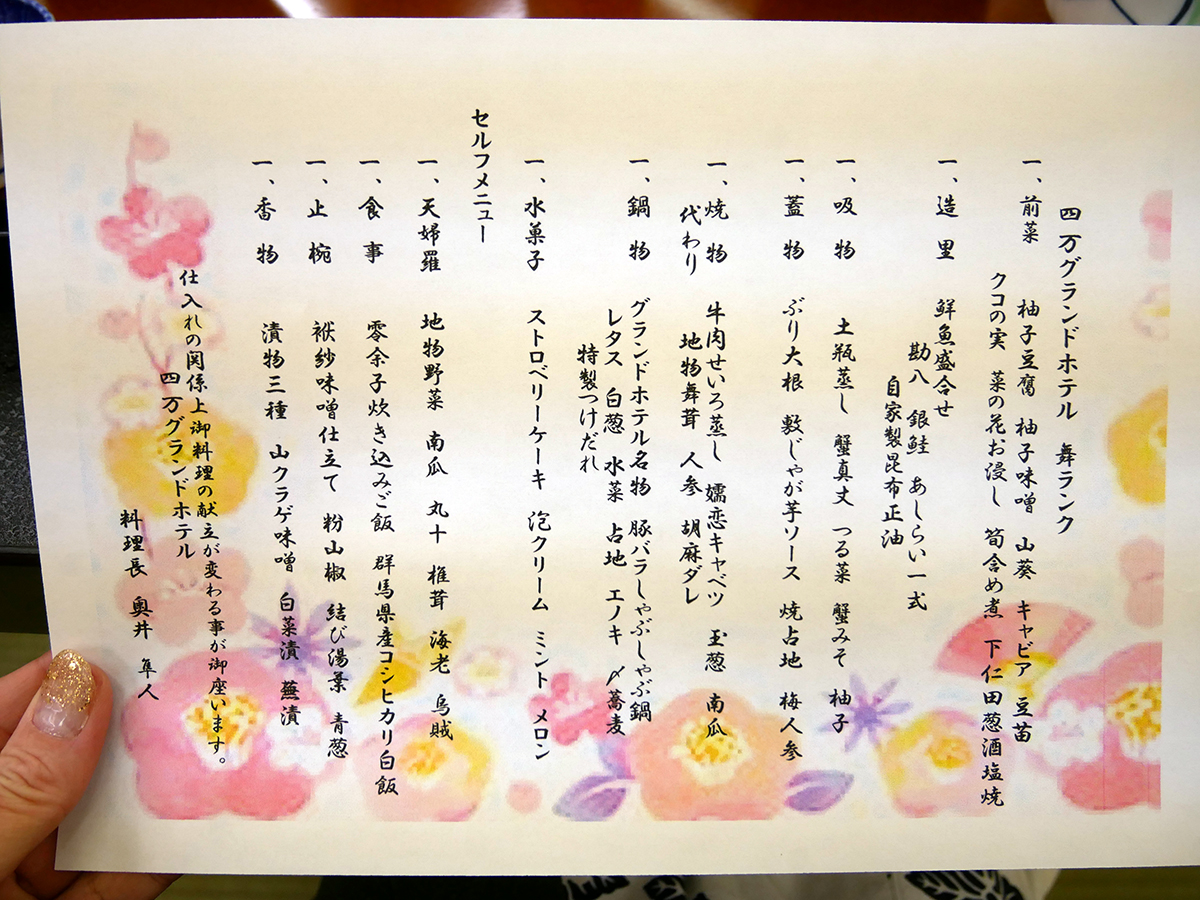 四万グランドホテル　舞ランク
一、前菜　柚子豆腐　柚子味噌　山葵　キャビア　豆苗
クコの実　菜の花お浸し　筍含め煮　下仁田葱酒塩焼
一、造里　鮮魚盛合せ
勘八　銀鮭　あしらい一式
自家製昆布正油
一、吸物　土瓶蒸し　蟹真丈　つる菜　蟹みそ　柚子
一、蓋物　ぶり大根　敷じゃが芋ソース　焼占地　梅人参
一、焼物　牛肉せいろ蒸し　嬬恋キャベツ　玉葱　南瓜
代わり　地物舞茸　人参　胡麻ダレ
一、鍋物　グランドホテル名物　豚バラしゃぶしゃぶ鍋
レタス　白葱　水菜　占地　エノキ　〆蕎麦
特製つけだれ
一、水菓子　ストロベリーケーキ　泡クリーム　ミント　メロン
セルフメニュー
一、天婦羅　地物野菜　南瓜　丸十　椎茸　海老　烏賊
一、食事　零余子炊き込みご飯　群馬県産コシヒカリ白飯
一、止椀　袱紗味噌仕立て　粉山椒　結び湯葉　青葱
一、香物　漬物三種　山クラゲ味噌　白菜漬　蕪漬
仕入れの関係上御料理の献立が変わる事が御座います。
四万グランドホテル
料理長　奥井　隼人